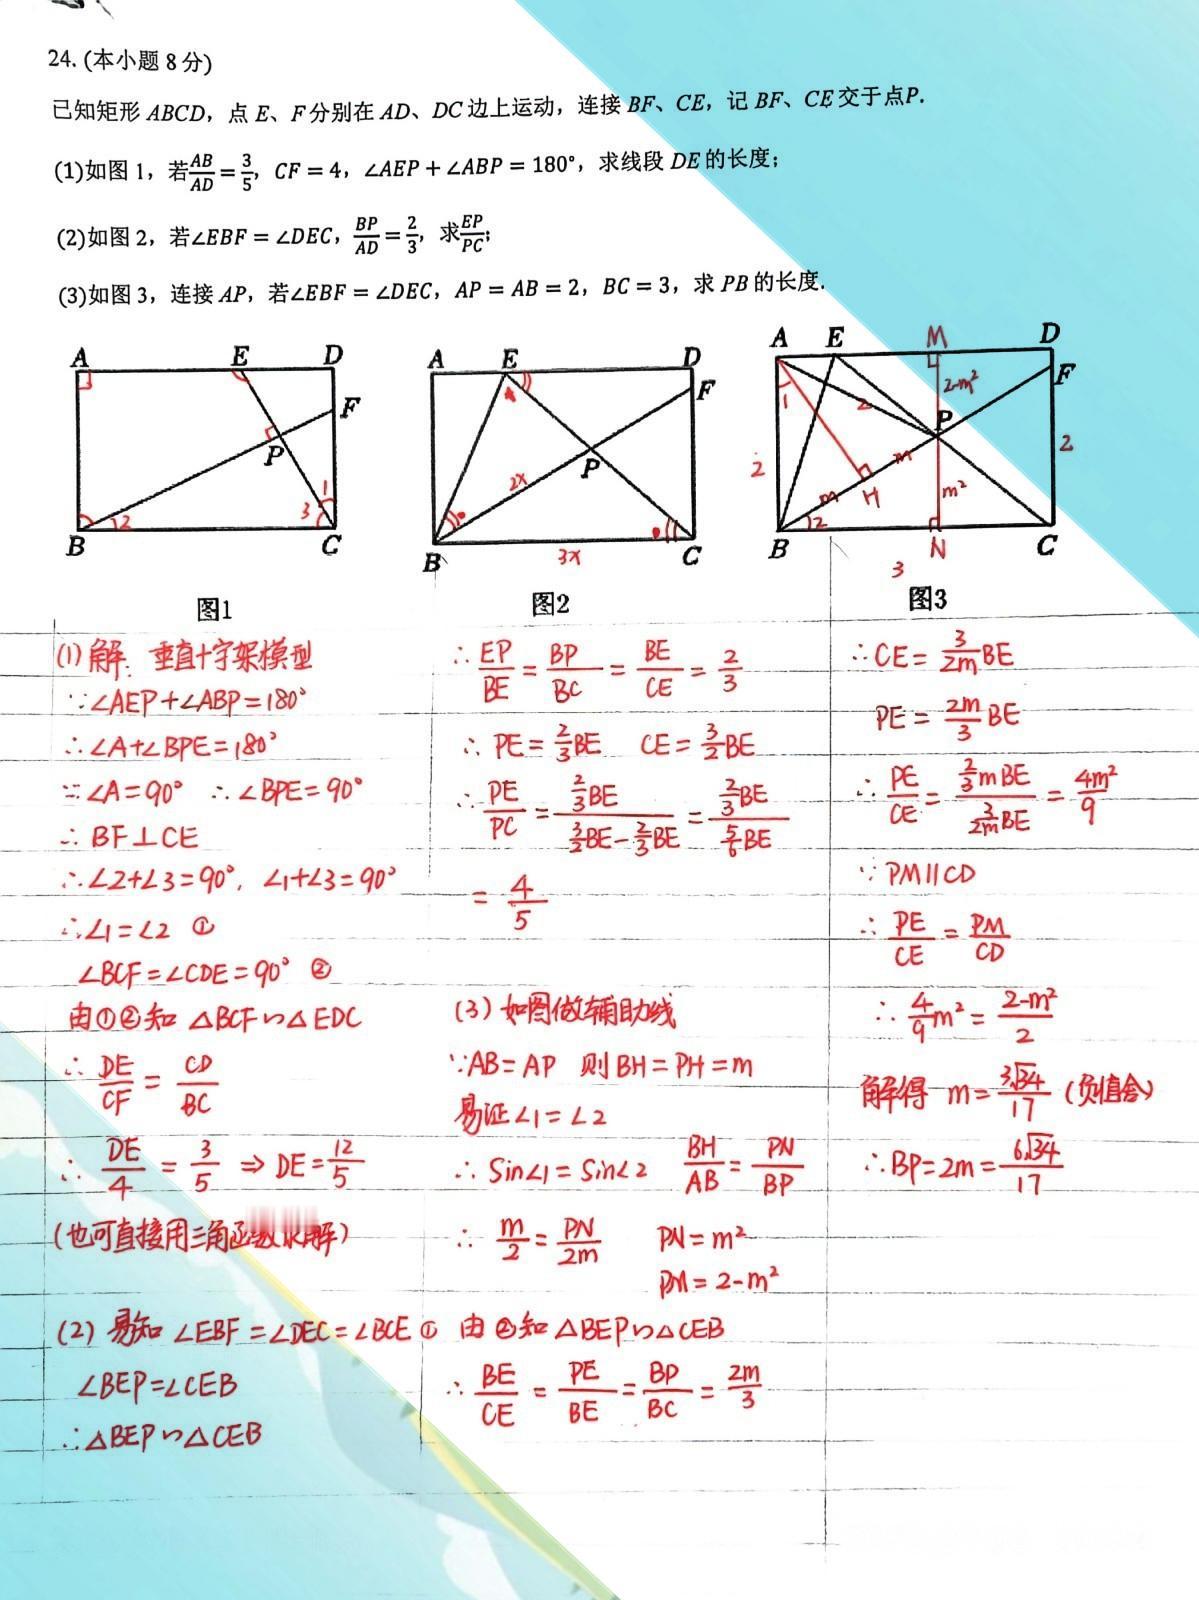 24. (本小题 8 分)
已知矩形 ABCD，点 E、F 分别在 AD、DC 边上运动，连接 BF、CE，记 BF、CE 交于点P.
(1)如图 1，若AB/AD = 3/5，CF = 4，∠AEP + ∠ABP = 180°，求线段 DE 的长度；
(2)如图 2，若∠EBF = ∠DEC，BP/AD = 2/3，求EP/PC；
(3)如图 3，连接 AP，若∠EBF = ∠DEC，AP = AB = 2，BC = 3，求 PB 的长度.
A E D
F
P
1
2 3
B C
图1
A E D
F
2x P
B 3x C
图2
A E M D
F
2-m²
1 2 P
2 m 2
m H m²
2
B N C
3
图3
(1) 解: 垂直十字架模型
∵∠AEP+∠ABP=180°
∴∠A+∠BPE=180°
∵∠A=90° ∴∠BPE=90°
∴BF⊥CE
∴∠2+∠3=90°, ∠1+∠3=90°
∴∠1=∠2 ①
∠BCF=∠CDE=90° ②
由①②知 △BCF∽△EDC
∴ DE/CF = CD/BC
∴ DE/4 = 3/5 ⇒ DE=12/5
(也可直接用三角函数求解)
(2) 易知 ∠EBF=∠DEC=∠BCE ①
∠BEP=∠CEB
∴△BEP∽△CEB
∴ EP/BE = BP/BC = BE/CE = 2/3
∴ PE=2/3BE CE=3/2BE
∴ PE/PC = 2/3BE/(3/2BE-2/3BE) = 2/3BE/(5/6BE)
= 4/5
(3) 如图做辅助线
∵AB=AP 则BH=PH=m
易证∠1=∠2
∴ Sin∠1=Sin∠2 BH/AB = PN/BP
∴ m/2 = PN/2m PN=m²
PM=2-m²
由②知 △BEP∽△CEB
∴ BE/CE = PE/BE = BP/BC = 2m/3
∴CE= 3/2m BE
PE= 2m/3 BE
∴ PE/CE = 2/3mBE/(3/2mBE) = 4m²/9
∵PM∥CD
∴ PE/CE = PM/CD
∴ 4/9m² = (2-m²)/2
解得 m= 3√34/17 (负值舍)
∴BP=2m= 6√34/17